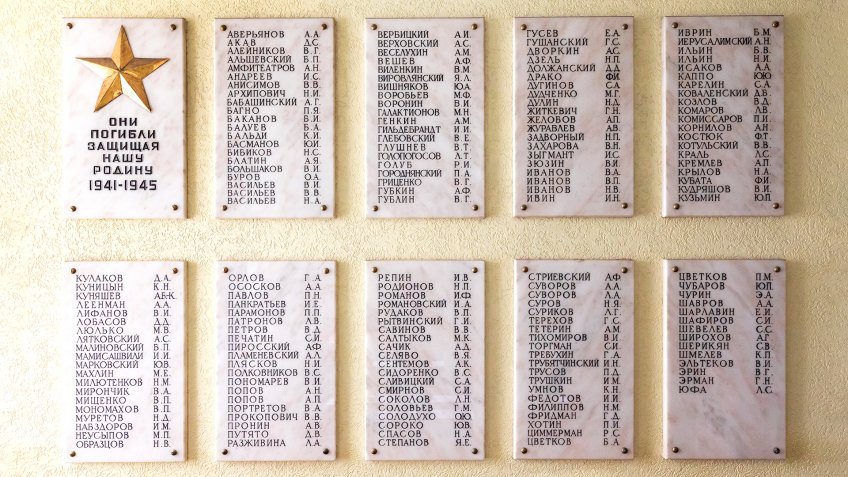 ОНИ
ПОГИБЛИ
ЗАЩИЩАЯ
НАШУ
РОДИНУ
1941-1945
АВЕРЬЯНОВ А.А.
АКАВ Д.С.
АЛЕЙНИКОВ В.Г.
АЛЬШЕВСКИЙ Б.П.
АМФИТЕАТРОВ А.Н.
АНДРЕЕВ И.С.
АНИСИМОВ В.В.
АРХИПОВИЧ Н.И.
БАБАШИНСКИЙ А.Г.
БАГНО П.Я.
БАКАНОВ Б.И.
БАЛУЕВ Б.А.
БАЛЬДИ К.И.
БАСМАНОВ Ю.И.
БИБИКОВ Н.С.
БЛАТИН А.Я.
БОЛЬШАКОВ В.И.
БУРОВ О.А.
ВАСИЛЬЕВ В.И.
ВАСИЛЬЕВ В.В.
ВАСИЛЬЕВ Н.А.
ВЕРБИЦКИЙ А.И.
ВЕРХОВСКИЙ А.С.
ВЕСЕЛУХИН А.М.
ВЕШЕВ А.Ф.
ВИЛЕНКИН В.М.
ВИРОВЛЯНСКИЙ Я.Л.
ВИШНЯКОВ Ю.А.
ВОРОБЬЕВ М.Ф.
ВОРОНИН В.И.
ГАЛАКТИОНОВ М.Н.
ГЕНКИН А.М.
ГИЛЬДЕБРАНДТ И.И.
ГЛЕБОВСКИЙ В.Е.
ГЛУШНЕВ В.Т.
ГОЛОПОГОСОВ Л.Т.
ГОЛУБ Р.И.
ГОРОДНЯНСКИЙ П.А.
ГРИЦЕНКО В.Г.
ГУБКИН А.Ф.
ГУБЛИН В.Г.
ГУСЕВ Е.А.
ГУЩАНСКИЙ Г.С.
ДВОРКИН А.С.
ДЗЕЛЬ Н.П.
ДОЛЖАНСКИЙ Д.Д.
ДРАКО Ф.И.
ДУГИНОВ С.А.
ДУДЧЕНКО М.Г.
ДУЛИН Н.Д.
ЖИТКЕВИЧ Г.Н.
ЖЕЛОБОВ А.П.
ЖУРАВЛЕВ А.В.
ЗАДВОРНЫЙ Н.П.
ЗАХАРОВА В.Н.
ЗЫГМАНТ И.С.
ЗЮЗИН В.И.
ИВАНОВ В.А.
ИВАНОВ В.П.
ИВАНОВ Н.В.
ИВИН И.Н.
ИВРИН Б.М.
ИЕРУСАЛИМСКИЙ А.Н.
ИЛЬИН Б.В.
ИЛЬИН Н.И.
ИСАКОВ А.А.
КАППО Ю.Ю.
КАРЕЛИН С.А.
КОВАЛЕНСКИЙ Д.Б.
КОЗЛОВ В.Д.
КОМАРОВ Л.В.
КОМИССАРОВ П.И.
КОРНИЛОВ А.Н.
КОСТЮК Ф.Т.
КОТУЛЬСКИЙ В.В.
КРАЛЬ Л.С.
КРЕМЛЕВ А.П.
КРЫЛОВ Н.А.
КУБАТА Ф.И.
КУДРЯШОВ В.И.
КУЗЬМИН Ю.П.
КУЛАКОВ Д.А.
КУНИЦЫН К.Н.
КУНЯШЕВ АБ-К.
ЛЕЕНМАН А.А.
ЛИФАНОВ В.И.
ЛОБАСОВ Д.Д.
ЛЮЛЬКО М.В.
ЛЯТКОВСКИЙ А.С.
МАЛИНОВСКИЙ Б.П.
МАМИСАШВИЛИ И.И.
МАРКОВСКИЙ Ю.В.
МАХЛИН М.Е.
МИЛЮТЕНКОВ Н.М.
МИРОНЧИК В.А.
МИЩЕНКО В.П.
МОНОМАХОВ В.П.
МУРЕТОВ Н.Д.
НАБЗДОРОВ И.М.
НЕУСЫПОВ М.П.
ОБРАЗЦОВ Н.В.
ОРЛОВ Г.А.
ОСОСКОВ А.А.
ПАВЛОВ П.Н.
ПАНКРАТЬЕВ И.Е.
ПАРАМОНОВ П.П.
ПАТРОНОВ Л.В.
ПЕТРОВ В.Д.
ПЕЧАТИН С.И.
ПИРОССКИЙ А.Ф.
ПЛАМЕНЕВСКИЙ А.Л.
ПЛЯСКОВ Н.И.
ПОЛКОВНИКОВ В.С.
ПОНОМАРЕВ В.И.
ПОПОВ А.Н.
ПОПОВ А.П.
ПОРТРЕТОВ В.А.
ПРОКОПОВИЧ В.В.
ПРОНИН А.В.
ПУТЯТО Д.В.
РАЗЖИВИНА Л.А.
РЕПИН И.В.
РОДИОНОВ Н.П.
РОМАНОВ И.Ф.
РОМАНОВСКИЙ И.А.
РУДАКОВ В.П.
РЫТВИНСКИЙ Г.И.
САВИНОВ В.В.
САЛТЫКОВ М.К.
САЧИК А.Д.
СЕЛЯВО В.Я.
СЕНТЕМОВ А.К.
СИДОРЕНКО В.С.
СЛИВИЦКИЙ С.А.
СМИРНОВ С.И.
СОКОЛОВ Л.Н.
СОЛОВЬЕВ Г.М.
СОЛОДУХО О.Ю.
СОРОКО Ю.В.
СПАСОВ Н.А.
СТЕПАНОВ Я.Е.
СТРИЕВСКИЙ А.Ф.
СУВОРОВ А.А.
СУВОРОВ Л.А.
СУРОВ Н.Я.
СУРИКОВ Л.Г.
ТЕРЕХОВ Г.С.
ТЕТЕРИН А.М.
ТИХОМИРОВ В.И.
ТОРГМАН С.И.
ТРЕБУХИН Г.А.
ТРУБЯТЧИНСКИЙ И.Н.
ТРУСОВ П.Д.
ТРУШКИН И.М.
УМНОВ К.Н.
ФЕДОТОВ И.И.
ФИЛИППОВ Н.М.
ФРИДМАН Г.Д.
ХОТИН П.И.
ЦИММЕРМАН Р.С.
ЦВЕТКОВ Б.А.
ЦВЕТКОВ П.М.
ЧУБАРОВ Ю.П.
ЧУРИН Э.А.
ШАВРОВ А.А.
ШАРЛАВИН Е.И.
ШАФИРОВ С.И.
ШЕВЕЛЕВ С.С.
ШИРОХОВ А.Г.
ШЕРИКЯН С.В.
ШМЕЛЕВ К.П.
ЭЛЬТЕКОВ В.И.
ЭРИН В.Г.
ЭРМАН Г.Н.
ЮФА Л.С.